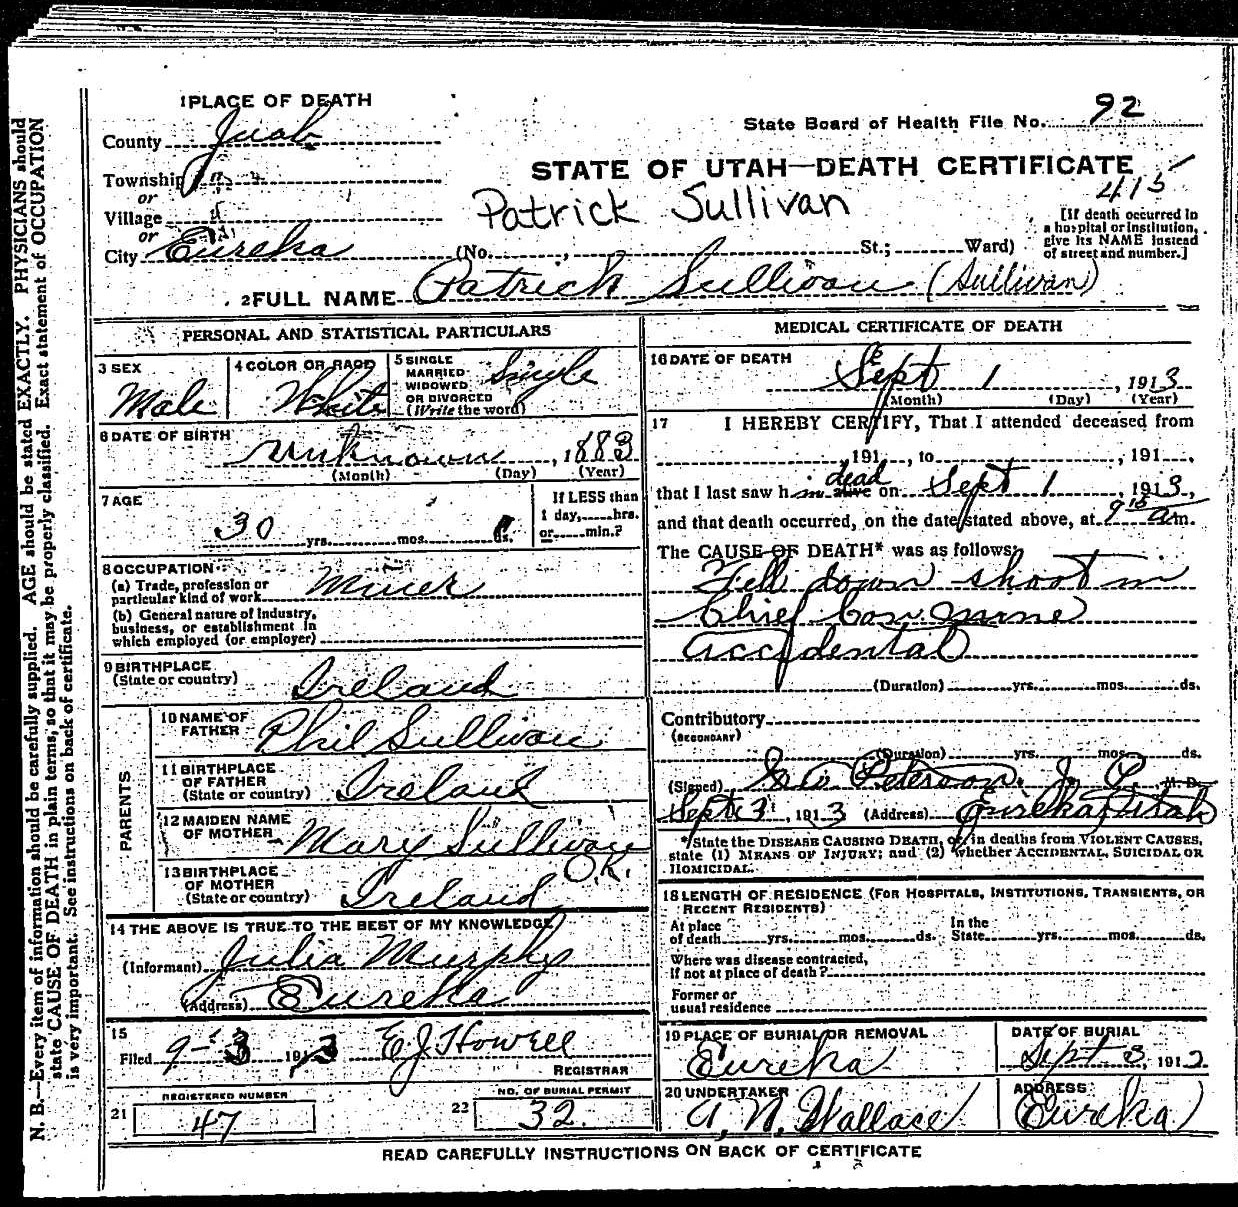 1 PLACE OF DEATH
County Juab
Township
or
Village
or
City Eureka (No. , St.; Ward)
State Board of Health File No. 92
STATE OF UTAH—DEATH CERTIFICATE
415
Patrick Sullivan
[If death occurred in
a hospital or institution,
give its NAME instead
of street and number.]
2 FULL NAME Patrick Sullivan (Sullivan)
PERSONAL AND STATISTICAL PARTICULARS
3 SEX
Male
4 COLOR OR RACE
White
5 SINGLE
MARRIED
WIDOWED
OR DIVORCED
(Write the word)
Single
6 DATE OF BIRTH
Unknown , 1883
(Month) (Day) (Year)
7 AGE
30 yrs. mos. ds.
If LESS than
1 day, hrs.
or min.?
8 OCCUPATION
(a) Trade, profession or
particular kind of work Miner
(b) General nature of industry,
business, or establishment in
which employed (or employer)
9 BIRTHPLACE
(State or country) Ireland
PARENTS
10 NAME OF
FATHER Phil Sullivan
11 BIRTHPLACE
OF FATHER
(State or country) Ireland
12 MAIDEN NAME
OF MOTHER Mary Sullivan
O.K.
13 BIRTHPLACE
OF MOTHER
(State or country) Ireland
14 THE ABOVE IS TRUE TO THE BEST OF MY KNOWLEDGE
(Informant) Julia Murphy
(Address) Eureka
15
Filed 9-3 1913 E J Howell
REGISTRAR
REGISTERED NUMBER
21 47
NO. OF BURIAL PERMIT
22 32.
MEDICAL CERTIFICATE OF DEATH
16 DATE OF DEATH
Sept 1 , 1913
(Month) (Day) (Year)
17 I HEREBY CERTIFY, That I attended deceased from
, 191 , to , 191 ,
dead
that I last saw him alive on Sept 1 , 1913,
and that death occurred, on the date stated above, at 9 15 a m.
The CAUSE OF DEATH* was as follows:
Fell down shoot in
Chief Con mine
accidental
(Duration) yrs. mos. ds.
Contributory
(SECONDARY)
(Duration) yrs. mos. ds.
(Signed) Peterson J. P. M. D.
Sept 3 , 1913 (Address) Eureka Utah
*State the DISEASE CAUSING DEATH, or in deaths from VIOLENT CAUSES,
state (1) MEANS OF INJURY; and (2) whether ACCIDENTAL, SUICIDAL OR
HOMICIDAL.
18 LENGTH OF RESIDENCE (FOR HOSPITALS, INSTITUTIONS, TRANSIENTS, OR
RECENT RESIDENTS)
At place In the
of death yrs. mos. ds. State yrs. mos. ds.
Where was disease contracted,
if not at place of death?
Former or
usual residence
19 PLACE OF BURIAL OR REMOVAL
Eureka
DATE OF BURIAL
Sept 3, 1913
20 UNDERTAKER
A. N. Wallace
ADDRESS
Eureka
READ CAREFULLY INSTRUCTIONS ON BACK OF CERTIFICATE
N. B.—Every item of information should be carefully supplied. AGE should be stated EXACTLY. PHYSICIANS should
state CAUSE OF DEATH in plain terms, so that it may be properly classified. Exact statement of OCCUPATION
is very important. See instructions on back of certificate.